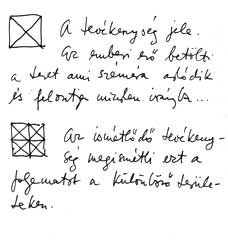 A tevékenység jele.
Az emberi erő betölti
a teret ami számára adódik
és felontja minden irányba...
Az ismétlődő tevékeny-
ség megismétli ezt a
folyamatot a különböző terüle-
teken.